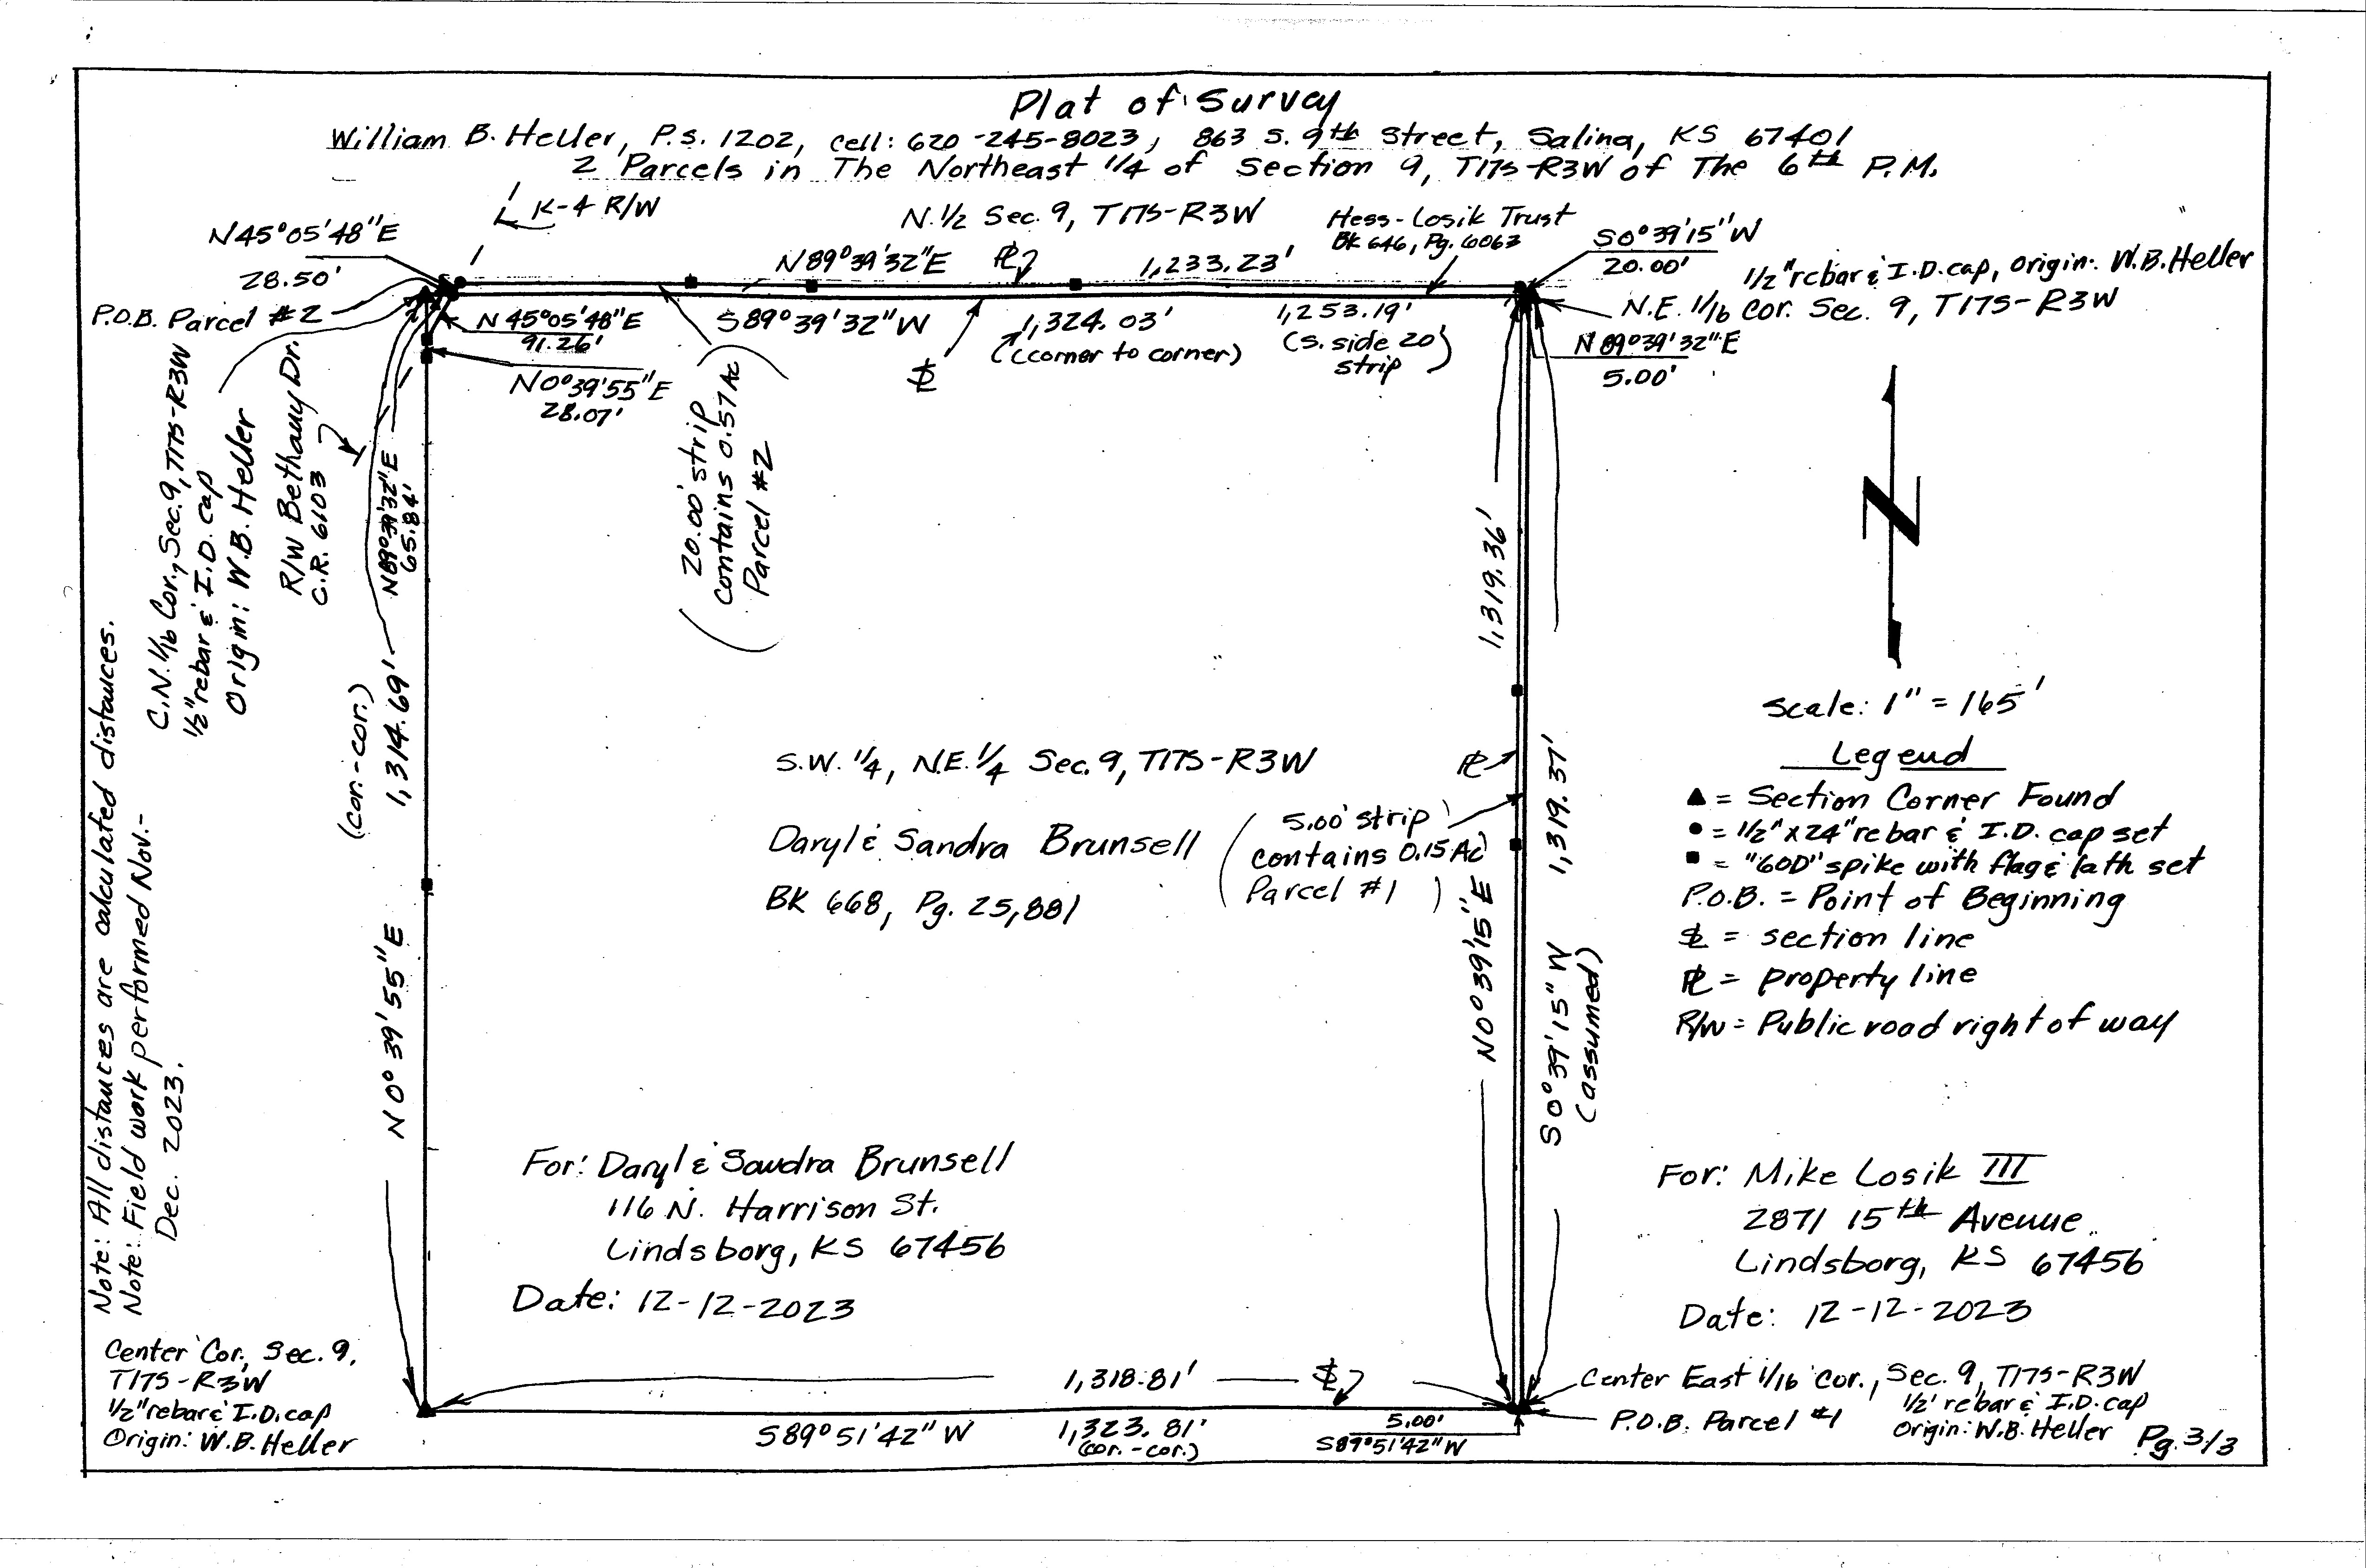 Plat of Survey
William B. Heller, P.S. 1202, cell: 620-245-8023, 863 S. 9th Street, Salina, KS 67401
2 Parcels in The Northeast 1/4 of Section 9, T17S-R3W of The 6th P.M.
K-4 R/W
N. 1/2 Sec. 9, T17S-R3W
Hess-Losik Trust
Bk 646, Pg. 6063
S0°39'15"W
20.00'
N45°05'48"E
28.50'
P.O.B. Parcel #2
N89°39'32"E
PL
1,233.23'
1/2" rebar & I.D. cap, Origin: W.B. Heller
N.E. 1/16 Cor. Sec. 9, T17S-R3W
N45°05'48"E
91.26'
S89°39'32"W
1,324.03'
(corner to corner)
1,253.19'
(S. side 20 strip)
N89°39'32"E
5.00'
SL
N0°39'55"E
28.07'
C.N. 1/16 Cor., Sec. 9, T17S-R3W
1/2" rebar & I.D. cap
Origin: W.B. Heller
R/W Bethany Dr.
C.R. 6103
N89°39'32"E
65.84'
20.00' strip
contains 0.57 Ac
Parcel #2
1,319.36'
(cor.-cor.)
1,314.69'
N0°39'55"E
Note: All distances are calculated distances.
Note: Field work performed Nov.-
Dec. 2023.
S.W. 1/4, N.E. 1/4 Sec. 9, T17S-R3W
Daryl & Sandra Brunsell
BK 668, Pg. 25,881
PL
5.00' strip
contains 0.15 Ac
Parcel #1
N0°39'15"E
1,319.37'
S0°39'15"W
(assumed)
Scale: 1" = 165'
Legend
▲ = Section Corner Found
● = 1/2" x 24" rebar & I.D. cap set
■ = "60D" spike with flag & lath set
P.O.B. = Point of Beginning
SL = section line
PL = property line
R/W = Public road right of way
For: Daryl & Sandra Brunsell
116 N. Harrison St.
Lindsborg, KS 67456
Date: 12-12-2023
For: Mike Losik III
2871 15th Avenue
Lindsborg, KS 67456
Date: 12-12-2023
Center Cor., Sec. 9,
T17S-R3W
1/2" rebar & I.D. cap
Origin: W.B. Heller
1,318.81'
SL
S89°51'42"W
1,323.81'
(cor.-cor.)
5.00'
S89°51'42"W
Center East 1/16 Cor., Sec. 9, T17S-R3W
1/2' rebar & I.D. cap
P.O.B. Parcel #1
Origin: W.B. Heller
Pg. 3/3